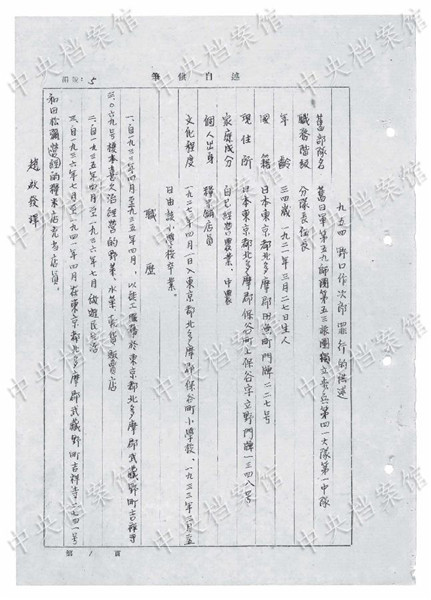 述 自 供 筆
5
九五四 野口作次郎罪行的供述
舊部隊名 舊日軍第五九師團第五三旅團獨立步兵第四一大隊第一中隊
職務階級 分隊長 伍長
年齡 三四歲 一九二一年三月二七日生人
原籍 日本東京都北多摩郡田無町門牌二二七号
現住所 日本東京都北多摩郡保谷町上保谷字立野門牌一三四八号
家庭成分 自己經營農業、中農
個人出身 店員
文化程度 一九二七年四月一日入東京都北多摩郡保谷町小學校、一九三三年三月
日由該小學校卒業。
職歷
一、自一九三三年四月至一九三五年四月、以徒工 於東京都北多摩郡武藏野町吉祥寺
三〇六九号榎本喜久治經營的野菜、水菓 販賣店
二、自一九三五年四月至一九三六年七月 生活
三、自一九三六年七月至一九四一年四月在東京都北多摩郡武藏野町吉祥寺二七四一号
和田 經營的釋米店充當店員。
趙啟發譯
第 1 頁
中央档案馆